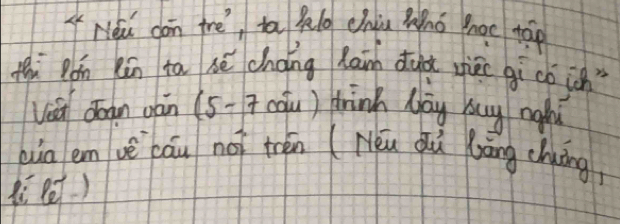 “ Nếu còn trẻ, ta ko chịu khó học tập
thì lớn lên ta sẽ chẳng làm được việc gì có ích”
Viết đoạn văn (5-7 câu) trình bày suy nghĩ
của em về câu nói trên (Nêu đủ bằng chứng,
lí lẽ.)